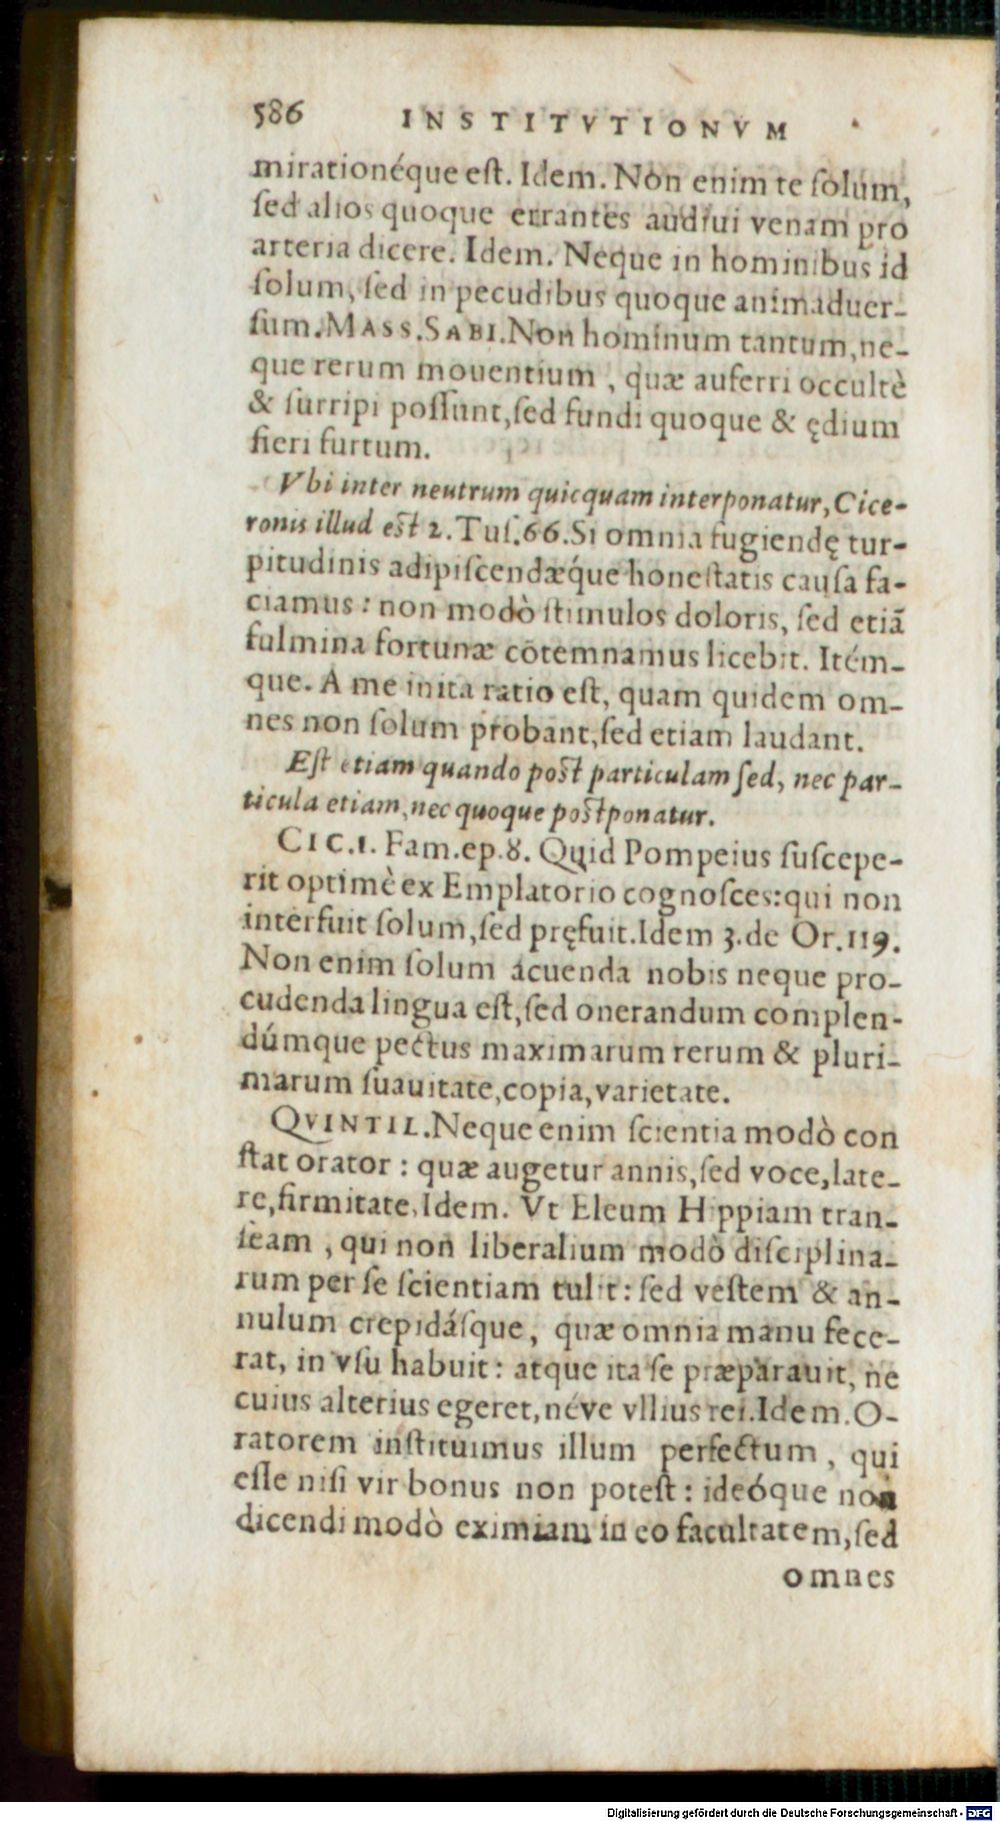 586 INSTITVTIONVM
mirationéque eſt. Idem. Non enim te ſolùm,
ſed alios quoque errantes audiui venam pro
arteria dicere. Idem. Neque in hominibus id
ſolum, ſed in pecudibus quoque animaduer-
ſum. MASS. SABI. Non hominum tantum, ne-
que rerum mouentium, quæ auferri occultè
& ſurripi poſſunt, ſed fundi quoque & ędium
fieri furtum.
Vbi inter neutrum quicquam interponatur, Cice-
ronis illud est 2. Tuſ. 66. Si omnia fugiendę tur-
pitudinis adipiſcendæque honeſtatis cauſa fa-
ciamus: non modò ſtimulos doloris, ſed etiã
fulmina fortunæ cõtemnamus licebit. Itém-
que. A me inita ratio eſt, quam quidem om-
nes non ſolum probant, ſed etiam laudant.
Eſt etiam quando post particulam ſed, nec par-
ticula etiam, nec quoque postponatur.
CIC. 1. Fam. ep. 8. Quid Pompeius ſuſcepe-
rit optimè ex Emplatorio cognoſces: qui non
interfuit ſolum, ſed pręfuit. Idem 3. de Or. 119.
Non enim ſolum acuenda nobis neque pro-
cudenda lingua eſt, ſed onerandum complen-
dúmque pectus maximarum rerum & pluri-
marum ſuauitate, copia, varietate.
QVINTIL. Neque enim ſcientia modò con
ſtat orator: quæ augetur annis, ſed voce, late-
re, firmitate. Idem. Vt Eleum Hippiam tran-
ſeam, qui non liberalium modò diſciplina-
rum per ſe ſcientiam tulit: ſed veſtem & an-
nulum crepidáſque, quæ omnia manu fece-
rat, in vſu habuit: atque ita ſe præparauit, ne
cuius alterius egeret, néve vllius rei. Idem. O-
ratorem inſtituimus illum perfectum, qui
eſſe niſi vir bonus non poteſt: ideóque non
dicendi modò eximiam in eo facultatem, ſed
omnes
Digitalisierung gefördert durch die Deutsche Forschungsgemeinschaft - DFG